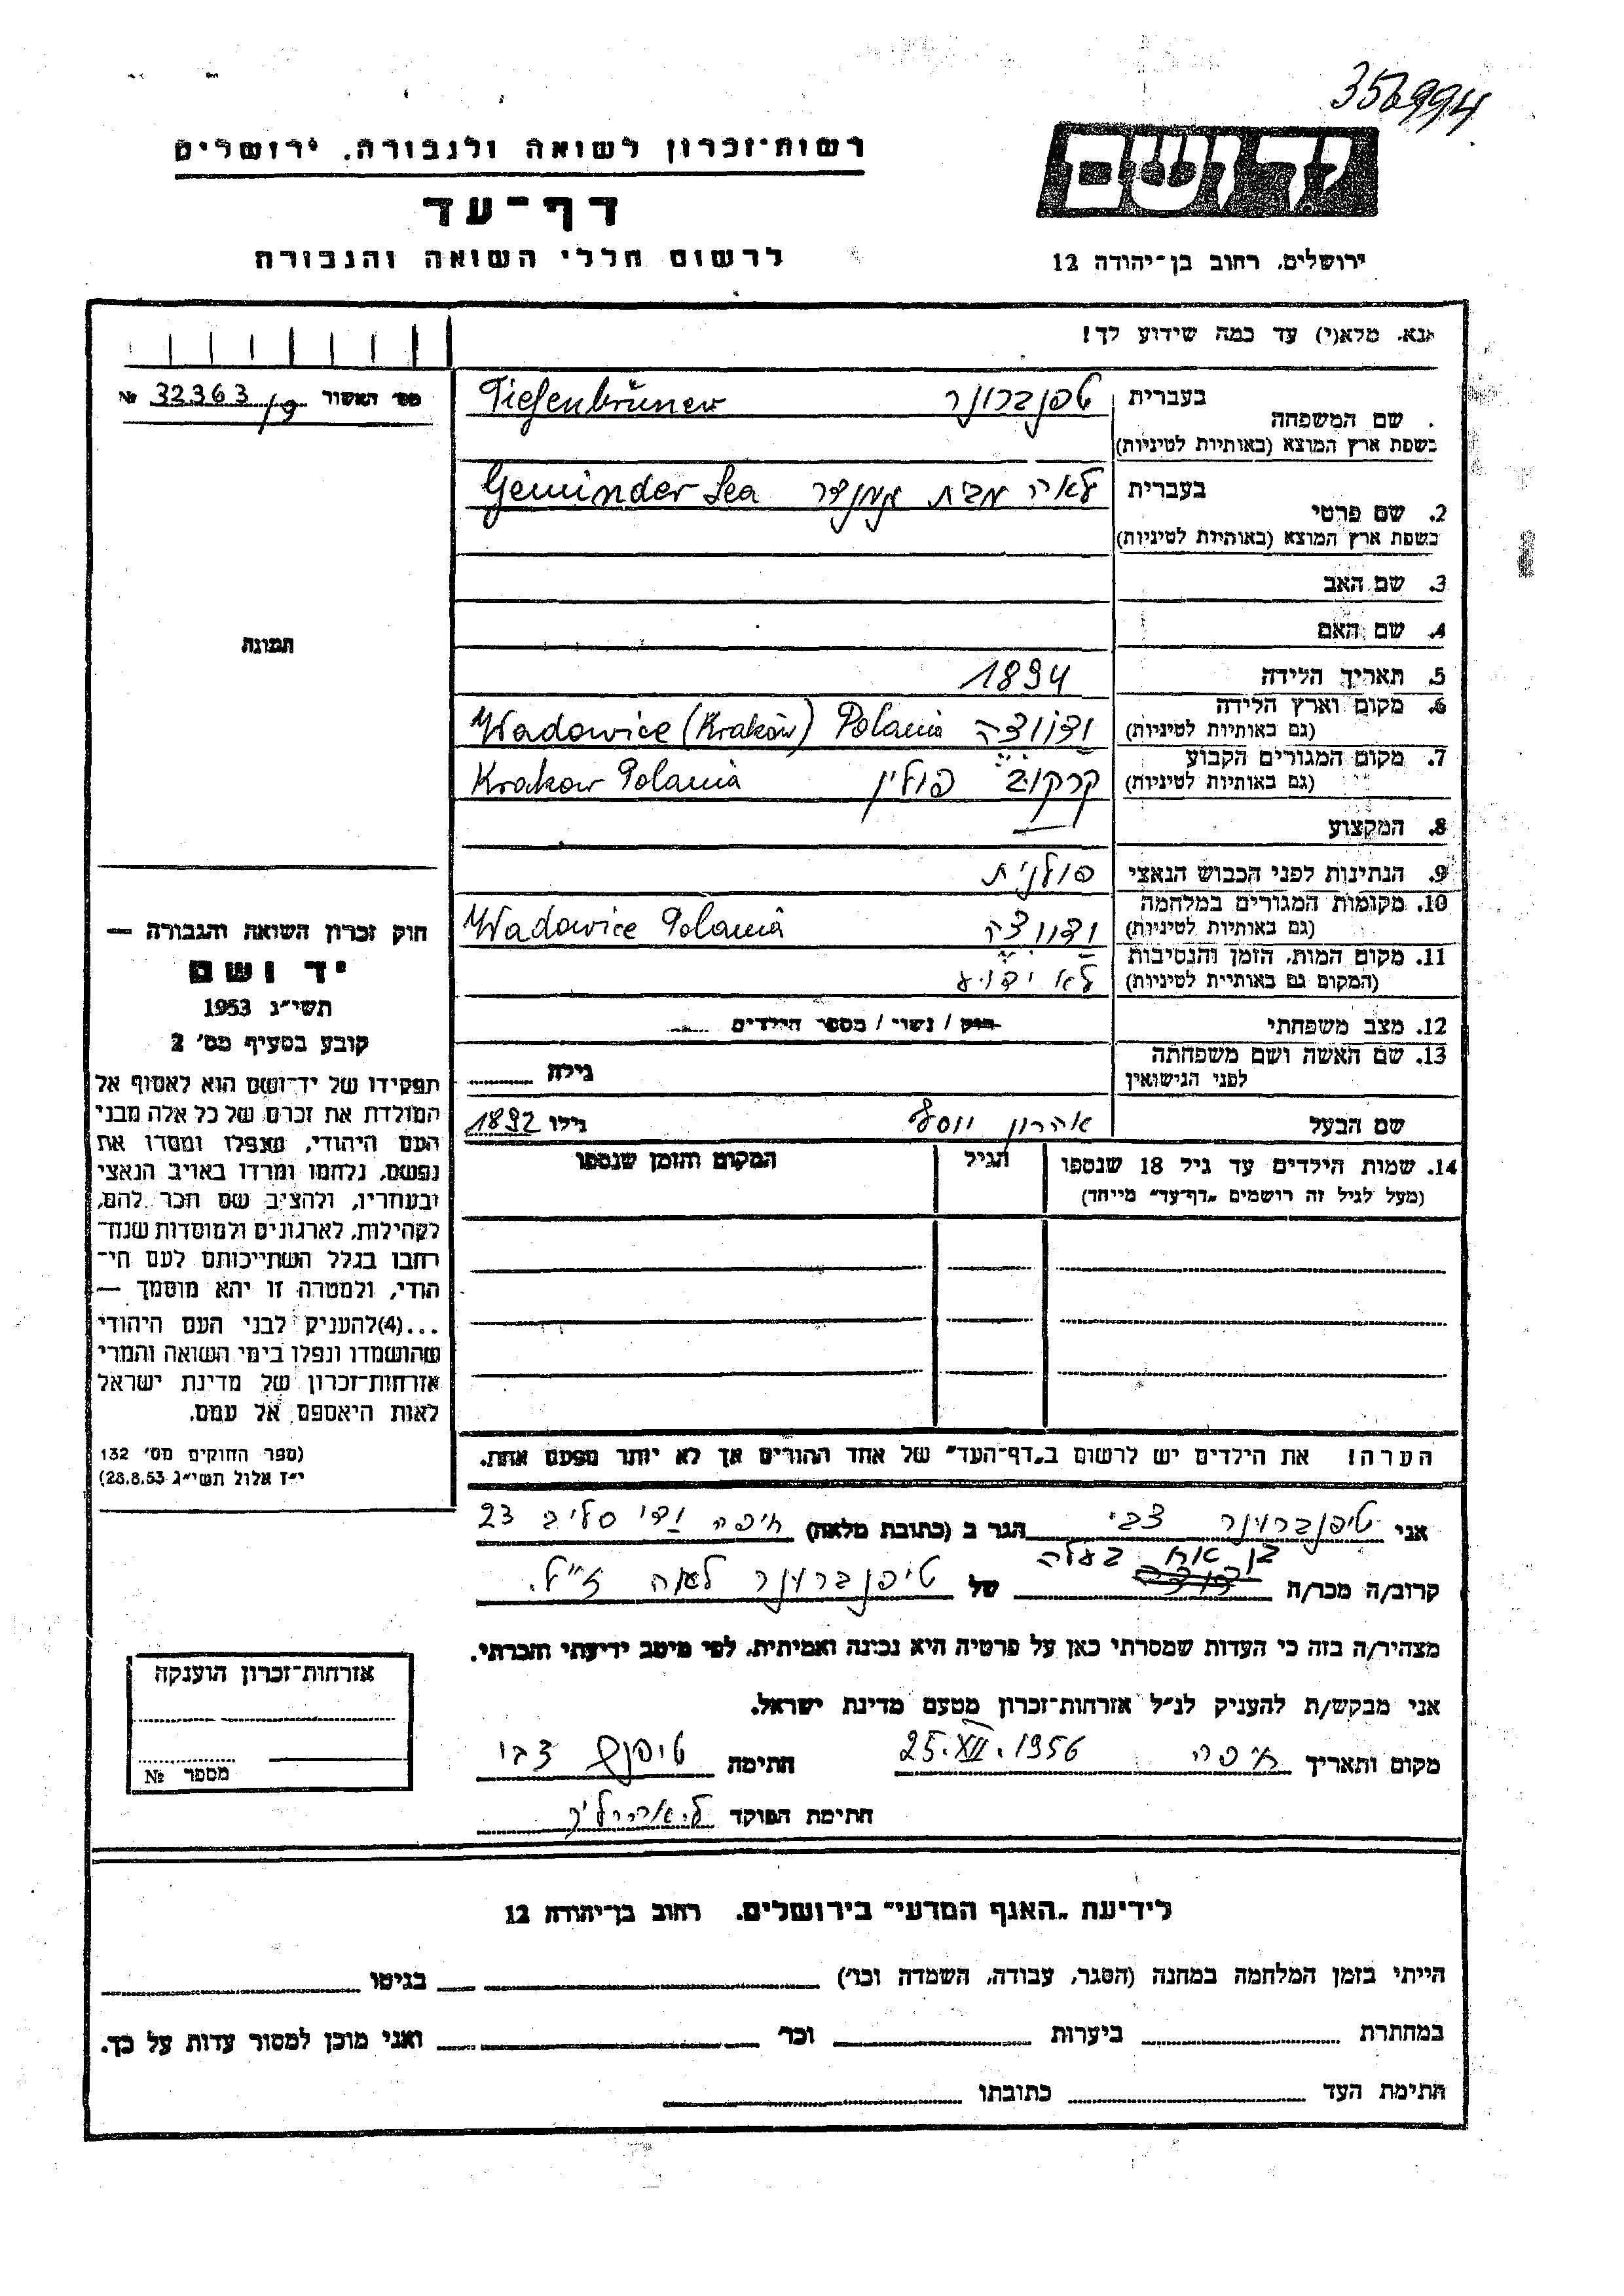 356994
רשות-זכרון לשואה ולגבורה, ירושלים
יד ושם
דף-עד
לרשום חללי השואה והגבורה
ירושלים, רחוב בן-יהודה 12
אנא, מלא(י) עד כמה שידוע לך!
מס׳ האשור 32363/פ №
בעברית טפנברונר Tiefenbrüner
שם המשפחה
בשפת ארץ המוצא (באותיות לטיניות)
בעברית לאה מבית גמנדר Geminder Lea
2. שם פרטי
בשפת ארץ המוצא (באותיות לטיניות)
3. שם האב
4. שם האם
תמונה
5. תאריך הלידה 1894
6. מקום וארץ הלידה
(גם באותיות לטיניות) ודוויצה Wadowice (Kraków) Polania
7. מקום המגורים הקבוע
(גם באותיות לטיניות) קרקוב פולין Krakow Polania
8. המקצוע —
9. הנתינות לפני הכבוש הנאצי פולנית
10. מקומות המגורים במלחמה
(גם באותיות לטיניות) ודוויצה Wadowice Polania
11. מקום המות, הזמן והנסיבות
(המקום גם באותיות לטיניות) לא ידוע
12. מצב משפחתי רוק / נשוי / מספר הילדים
13. שם האשה ושם משפחתה
לפני הנישואין גילה
שם הבעל אהרון יוסף גילו 1892
14. שמות הילדים עד גיל 18 שנספו הגיל המקום והזמן שנספו
(מעל לגיל זה רושמים „דף-עד” מייחד)
הערה! את הילדים יש לרשום ב„דף-העד” של אחד ההורים אך לא יותר מפעם אחת.
חוק זכרון השואה והגבורה —
יד ושם
תשי״ג 1953
קובע בסעיף מס׳ 2
תפקידו של יד-ושם הוא לאסוף אל
המולדת את זכרם של כל אלה מבני
העם היהודי, שנפלו ומסרו את
נפשם, נלחמו ומרדו באויב הנאצי
ובעוזריו, ולהציב שם וזכר להם,
לקהילות, לארגונים ולמוסדות שנח-
רבו בגלל השתייכותם לעם הי-
הודי, ולמטרה זו יהא מוסמך —
...(4)להעניק לבני העם היהודי
שהושמדו ונפלו בימי השואה והמרי
אזרחות-זכרון של מדינת ישראל
לאות היאספם אל עמם.
(ספר החוקים מס׳ 132
י״ז אלול תשי״ג 28.8.53)
אני טיפנברונר צבי הגר ב (כתובת מלאה) חיפה ודי סליב 23
בן אח בעלה
קרוב/ה מכר/ה של טיפנברונר לאה ז״ל.
מצהיר/ה בזה כי העדות שמסרתי כאן על פרטיה היא נכונה ואמיתית, לפי מיטב ידיעתי והכרתי.
אני מבקש/ת להעניק לנ״ל אזרחות-זכרון מטעם מדינת ישראל.
מקום ותאריך חיפה 25.XII.1956 חתימה
חתימת הפוקד
אזרחות-זכרון הוענקה
מספר №
לידיעת „האגף המדעי” בירושלים, רחוב בן-יהודה 12
הייתי בזמן המלחמה במחנה (הסגר, עבודה, השמדה וכו׳) בגיטו
במחתרת ביערות וכו׳ ואני מוכן למסור עדות על כך.
חתימת העד כתובתו